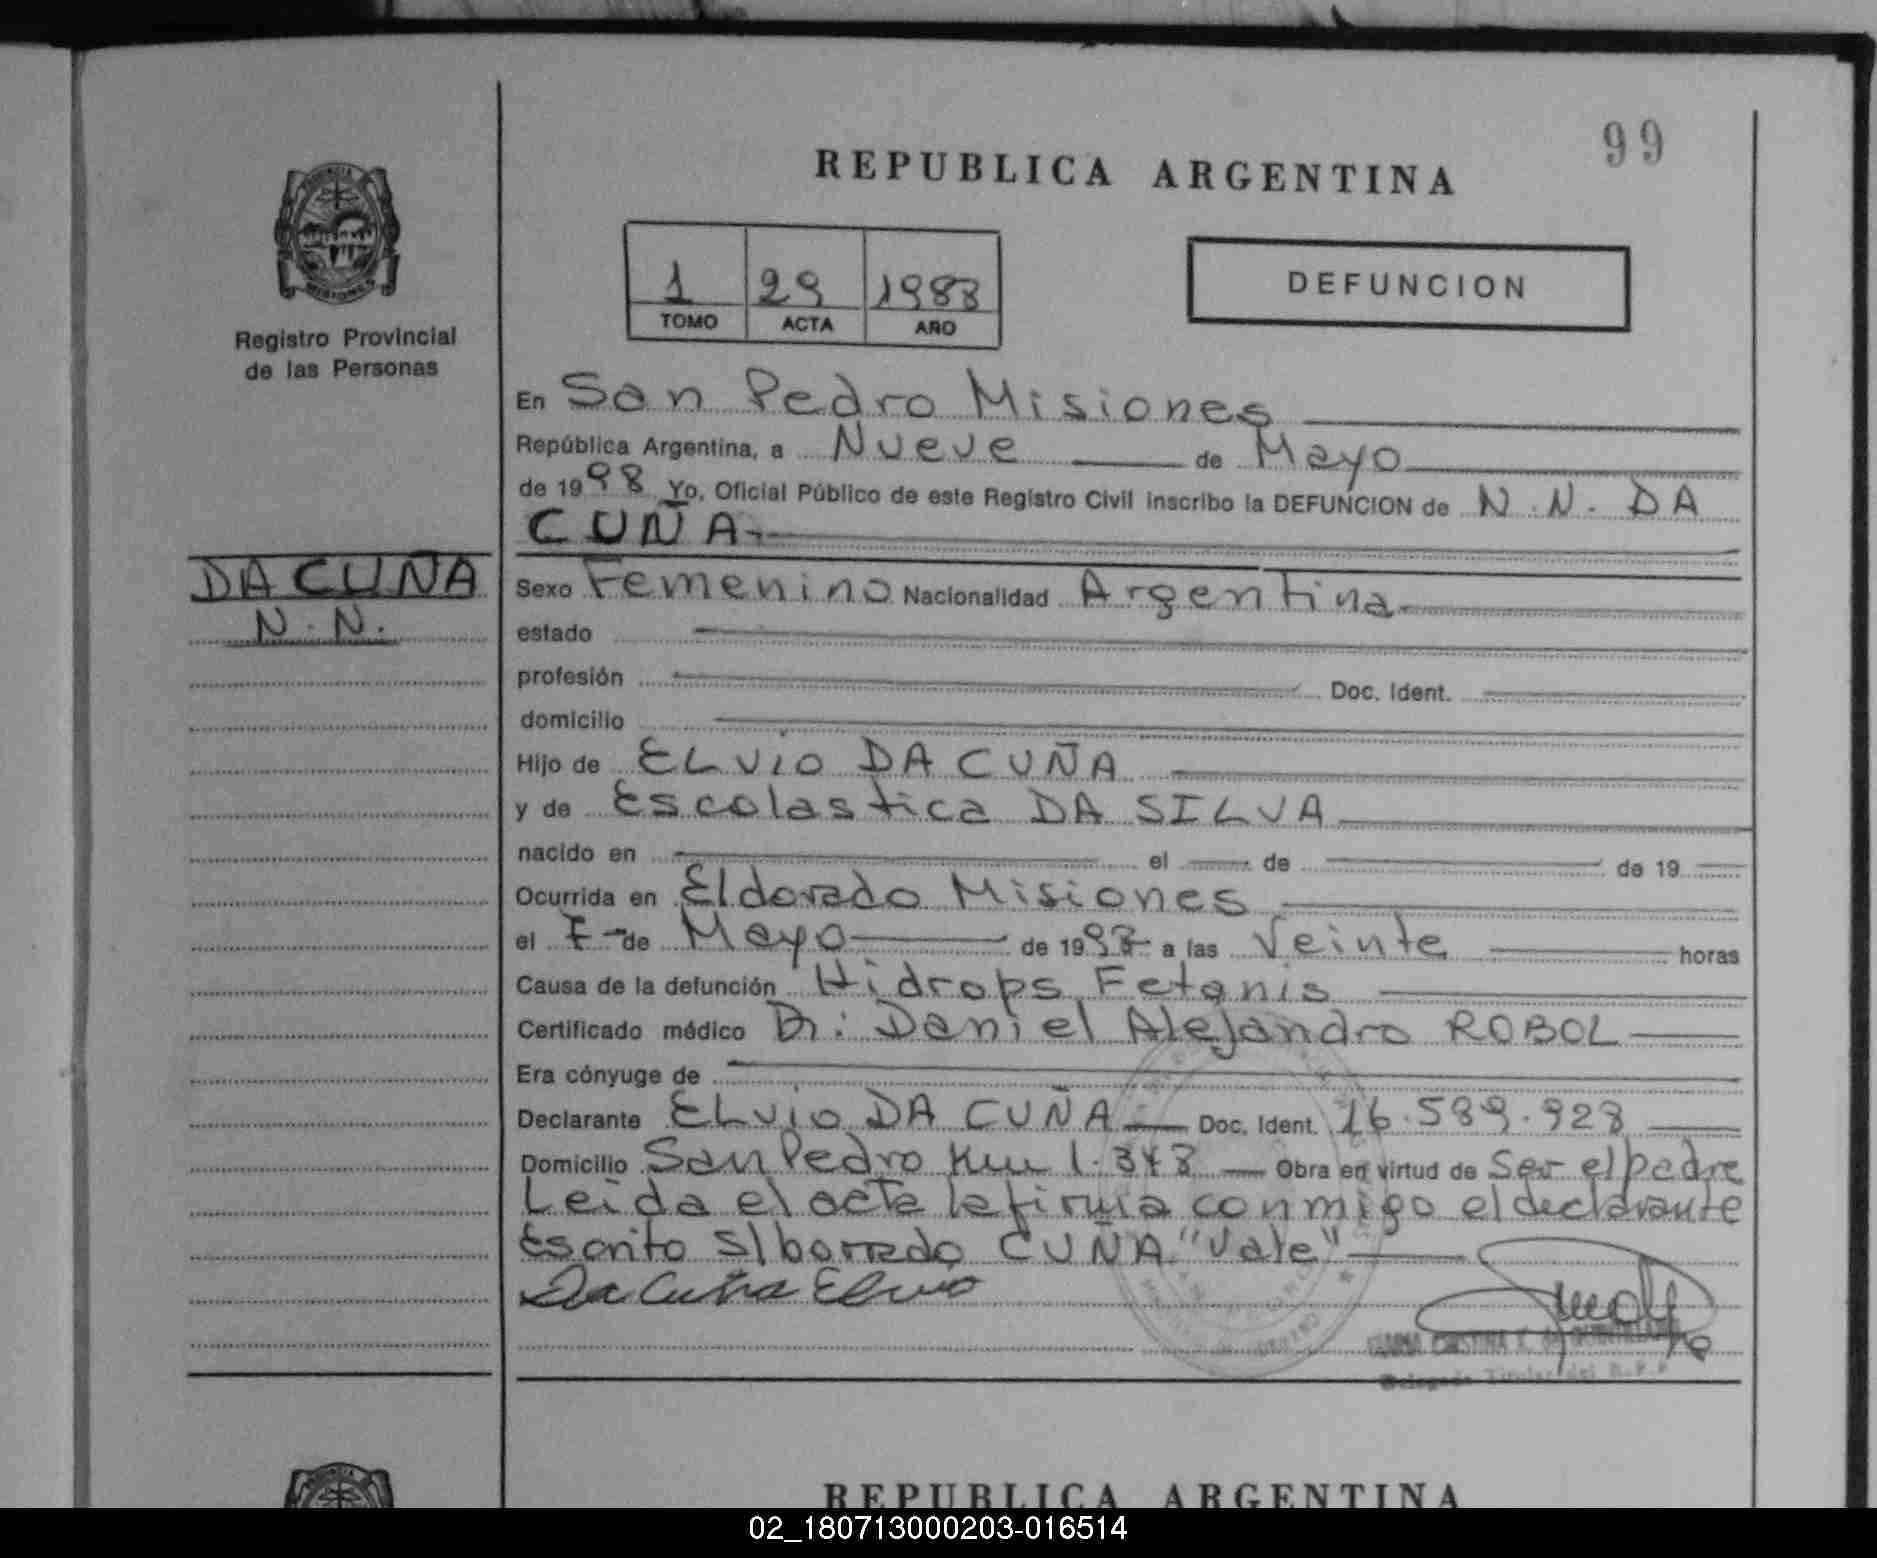 99
REPUBLICA ARGENTINA
1 29 1998
TOMO ACTA AÑO
DEFUNCION
PROVINCIA
MISIONES
Registro Provincial
de las Personas
En San Pedro Misiones
República Argentina, a Nueve de Mayo
de 1998 Yo, Oficial Público de este Registro Civil inscribo la DEFUNCION de N.N. DA
CUÑA
DA CUÑA
N.N.
Sexo Femenino Nacionalidad Argentina
estado
profesión Doc. Ident.
domicilio
Hijo de ELVIO DA CUÑA
y de Escolastica DA SILVA
nacido en el de de 19
Ocurrida en Eldorado Misiones
el 7 de Mayo de 1998 a las Veinte horas
Causa de la defunción Hidrops Fetanis
Certificado médico Dr: Daniel Alejandro ROBOL
Era cónyuge de
Declarante ELVIO DA CUÑA Doc. Ident. 16.589.928
Domicilio San Pedro Km 1.348 Obra en virtud de Ser el padre
Leida el acta la firma conmigo el declarante
Escrito S/borrado CUÑA "Vale"
Da Cuña Elvio
Titular del R.P.P
REPUBLICA ARGENTINA
02_180713000203-016514